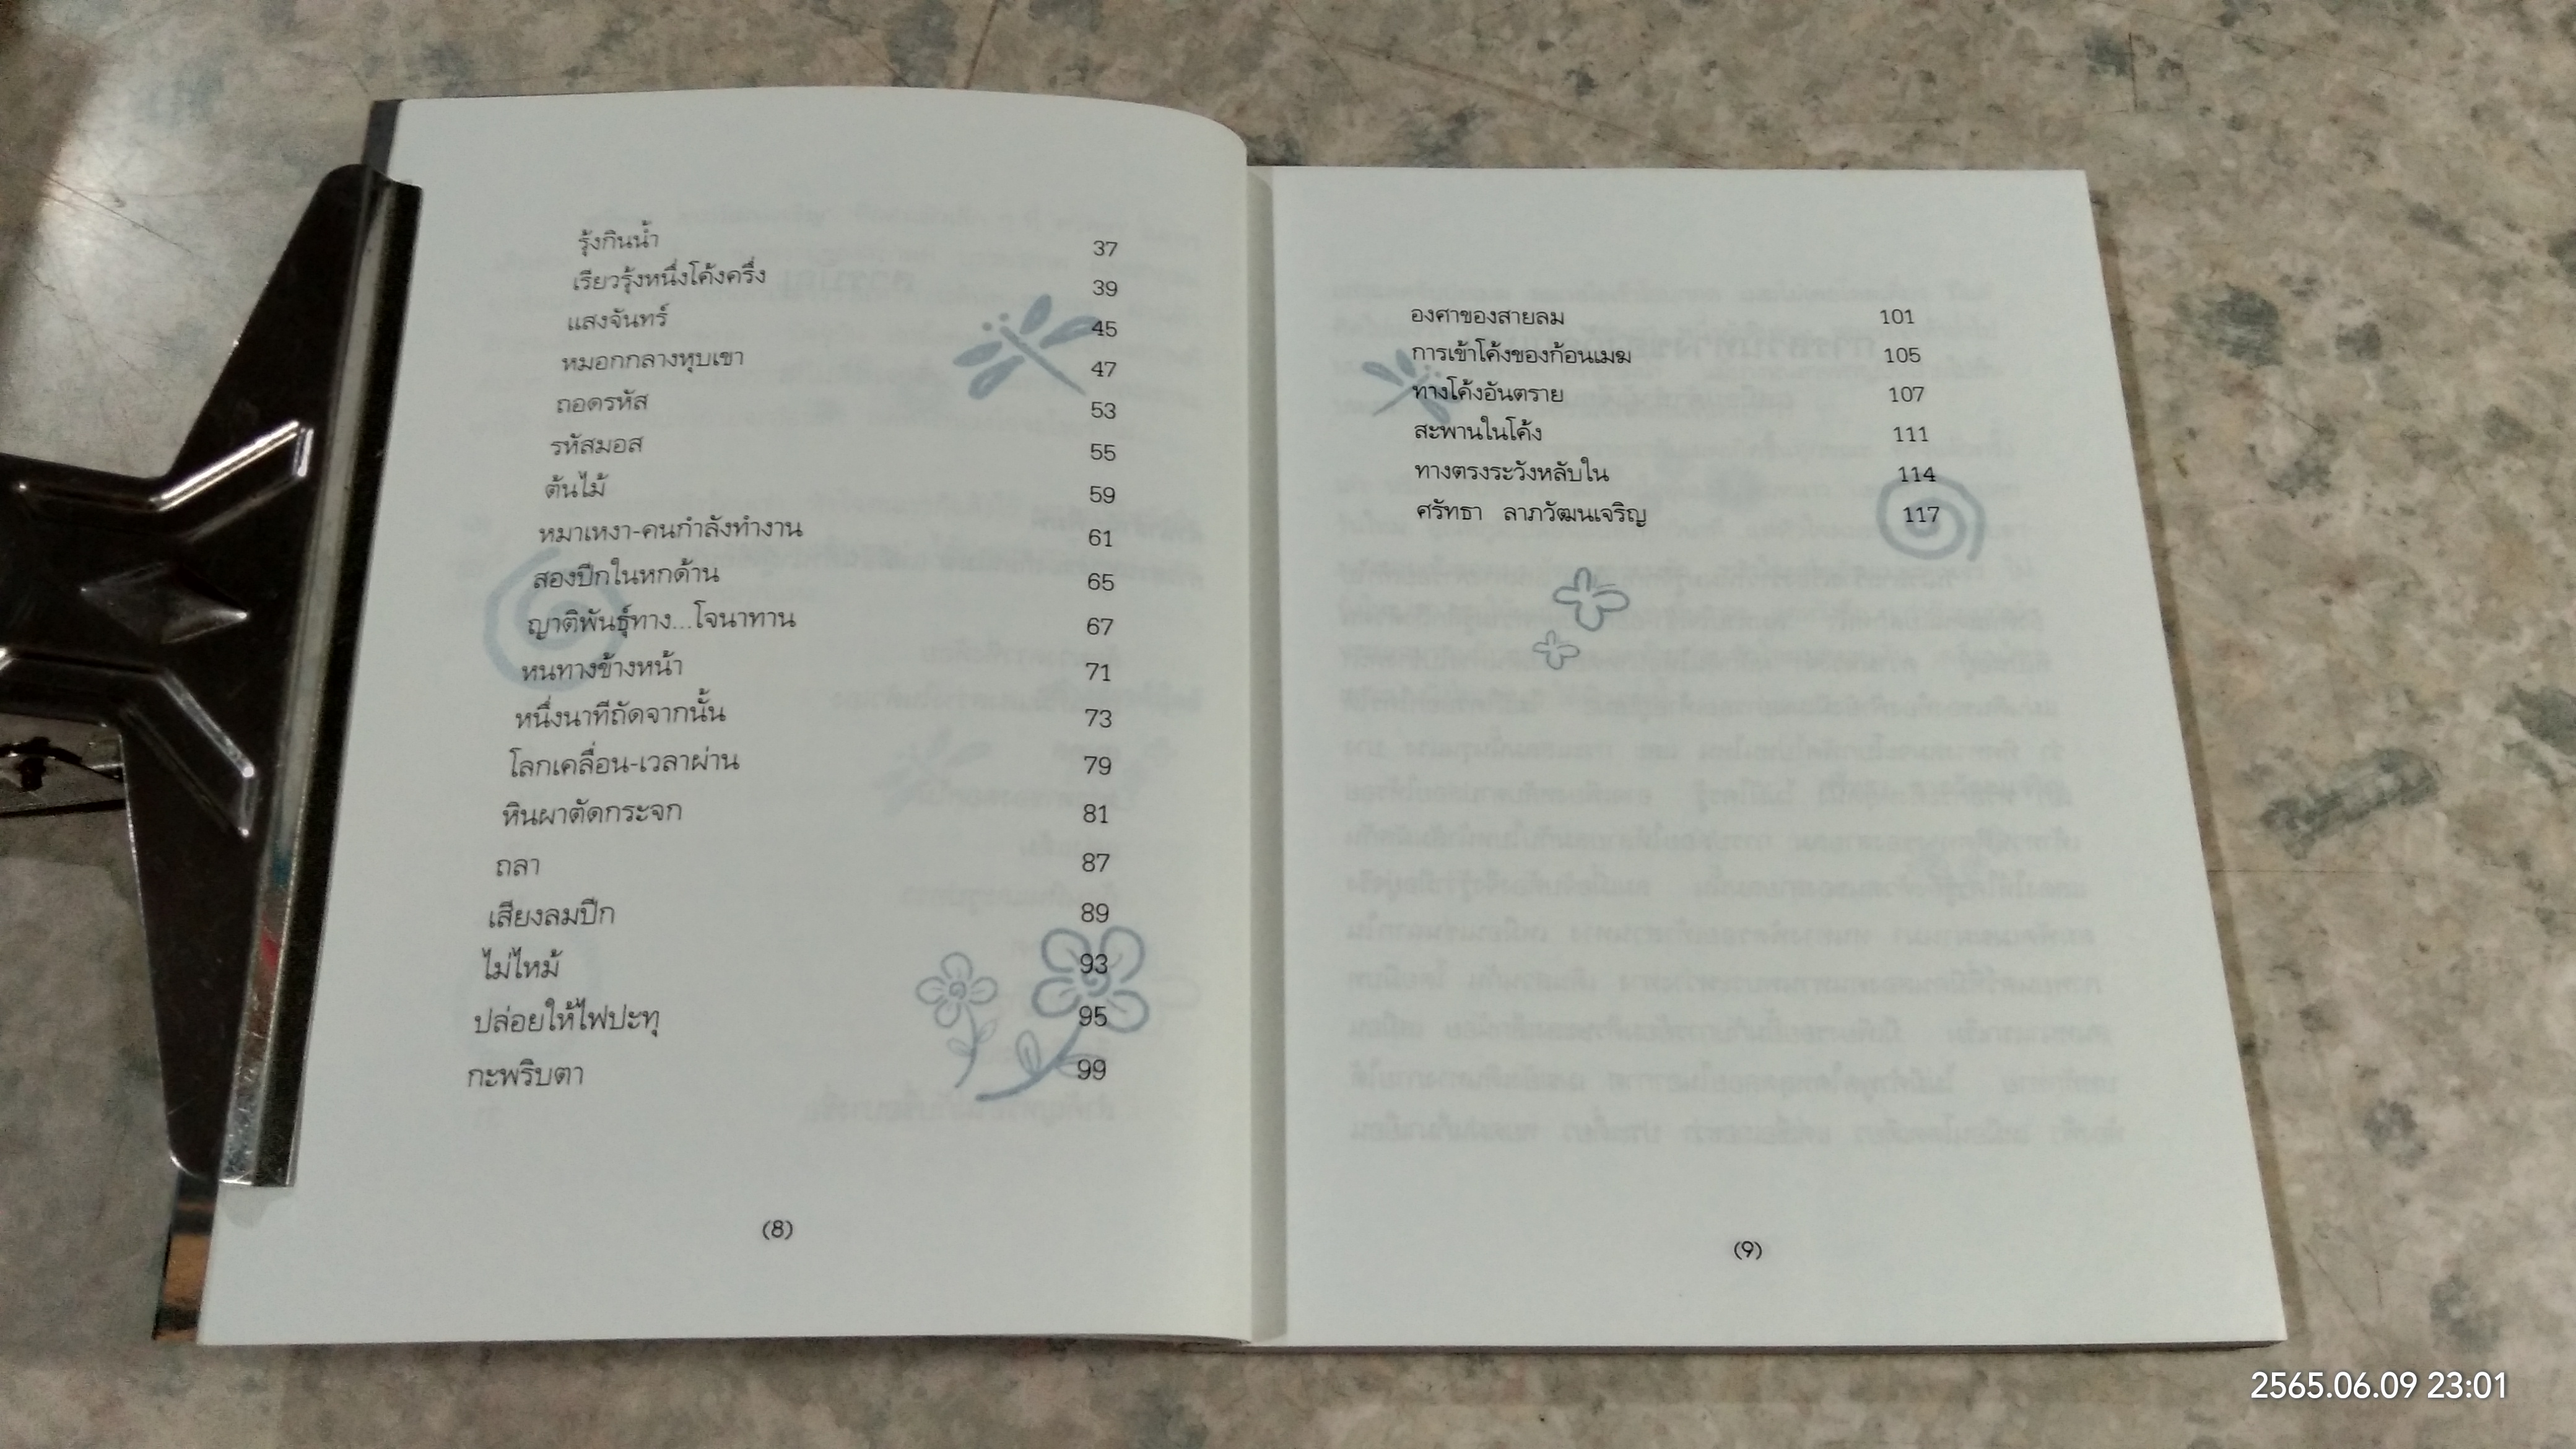 รุ้งกินน้ำ 37
เรียวรุ้งหนึ่งโค้งครึ่ง 39
แสงจันทร์ 45
หมอกกลางหุบเขา 47
ถอดรหัส 53
รหัสมอส 55
ต้นไม้ 59
หมาเหงา-คนกำลังทำงาน 61
สองปีกในหกด้าน 65
ญาติพันธุ์ทาง...โจนาทาน 67
หนทางข้างหน้า 71
หนึ่งนาทีถัดจากนั้น 73
โลกเคลื่อน-เวลาผ่าน 79
หินผาตัดกระจก 81
ถลา 87
เสียงลมปีก 89
ไม่ไหม้ 93
ปล่อยให้ไฟปะทุ 95
กะพริบตา 99
(8)
องศาของสายลม 101
การเข้าโค้งของก้อนเมฆ 105
ทางโค้งอันตราย 107
สะพานในโค้ง 111
ทางตรงระวังหลับใน 114
ศรัทธา ลาภวัฒนเจริญ 117
(9)
2565.06.09 23:01